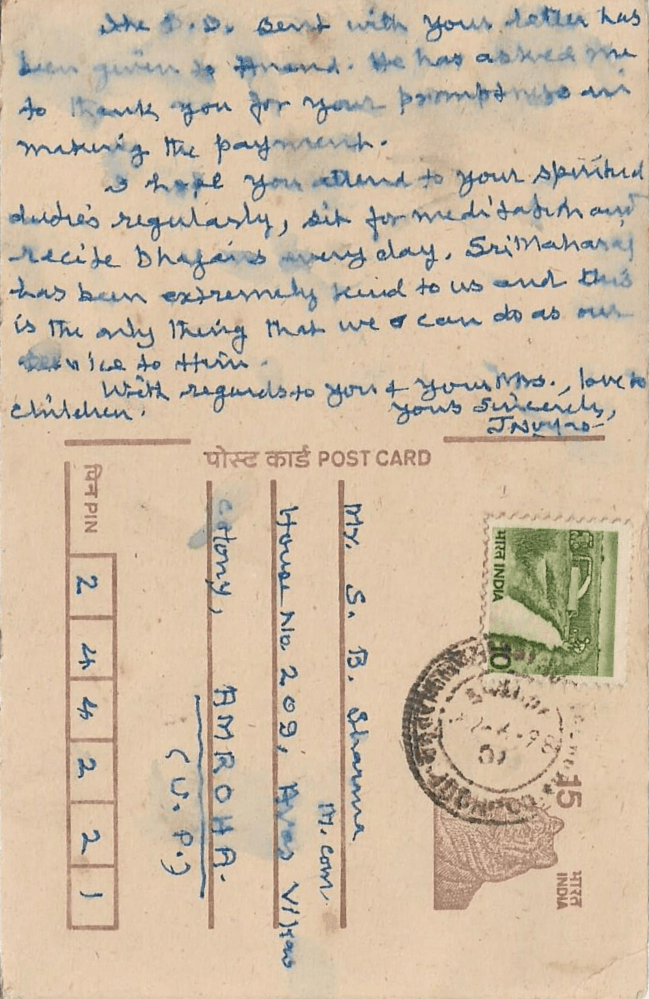 The D.D. sent with your letter has
been given to Anand. He has asked me
to thank you for your promptness in
making the payment.
I hope you attend to your spiritual
duties regularly, sit for meditation and
recite bhajans every day. Sri Maharaj
has been extremely kind to us and this
is the only thing that we can do as our
service to Him.
With regards to you & your Mrs., love to
children.
yours Sincerely,
पोस्ट कार्ड POST CARD
पिन PIN
2 4 4 2 2 1
Mr. S. B. Sharma
M. Com
House No 209, Avas Vikas
Colony, AMROHA.
(U.P.)
भारत INDIA
10
15
भारत
INDIA